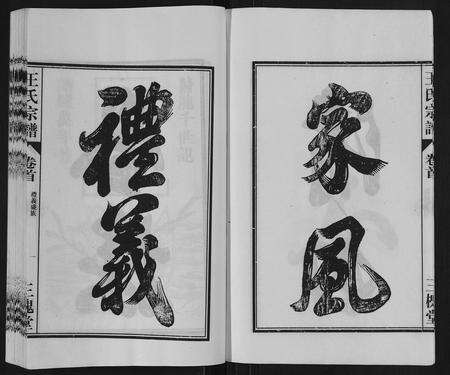 王氏宗譜
卷首
三槐堂
家風
禮義
王氏宗譜
卷首
一
三槐堂